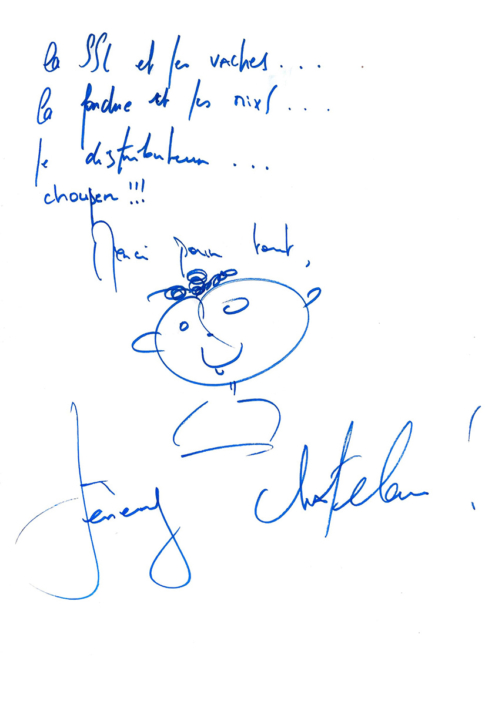 la SSL et les vaches...
la fondue et les mixs...
le distributeur...
choupen !!!
Merci pour tout,
Jérémy Chatelain !